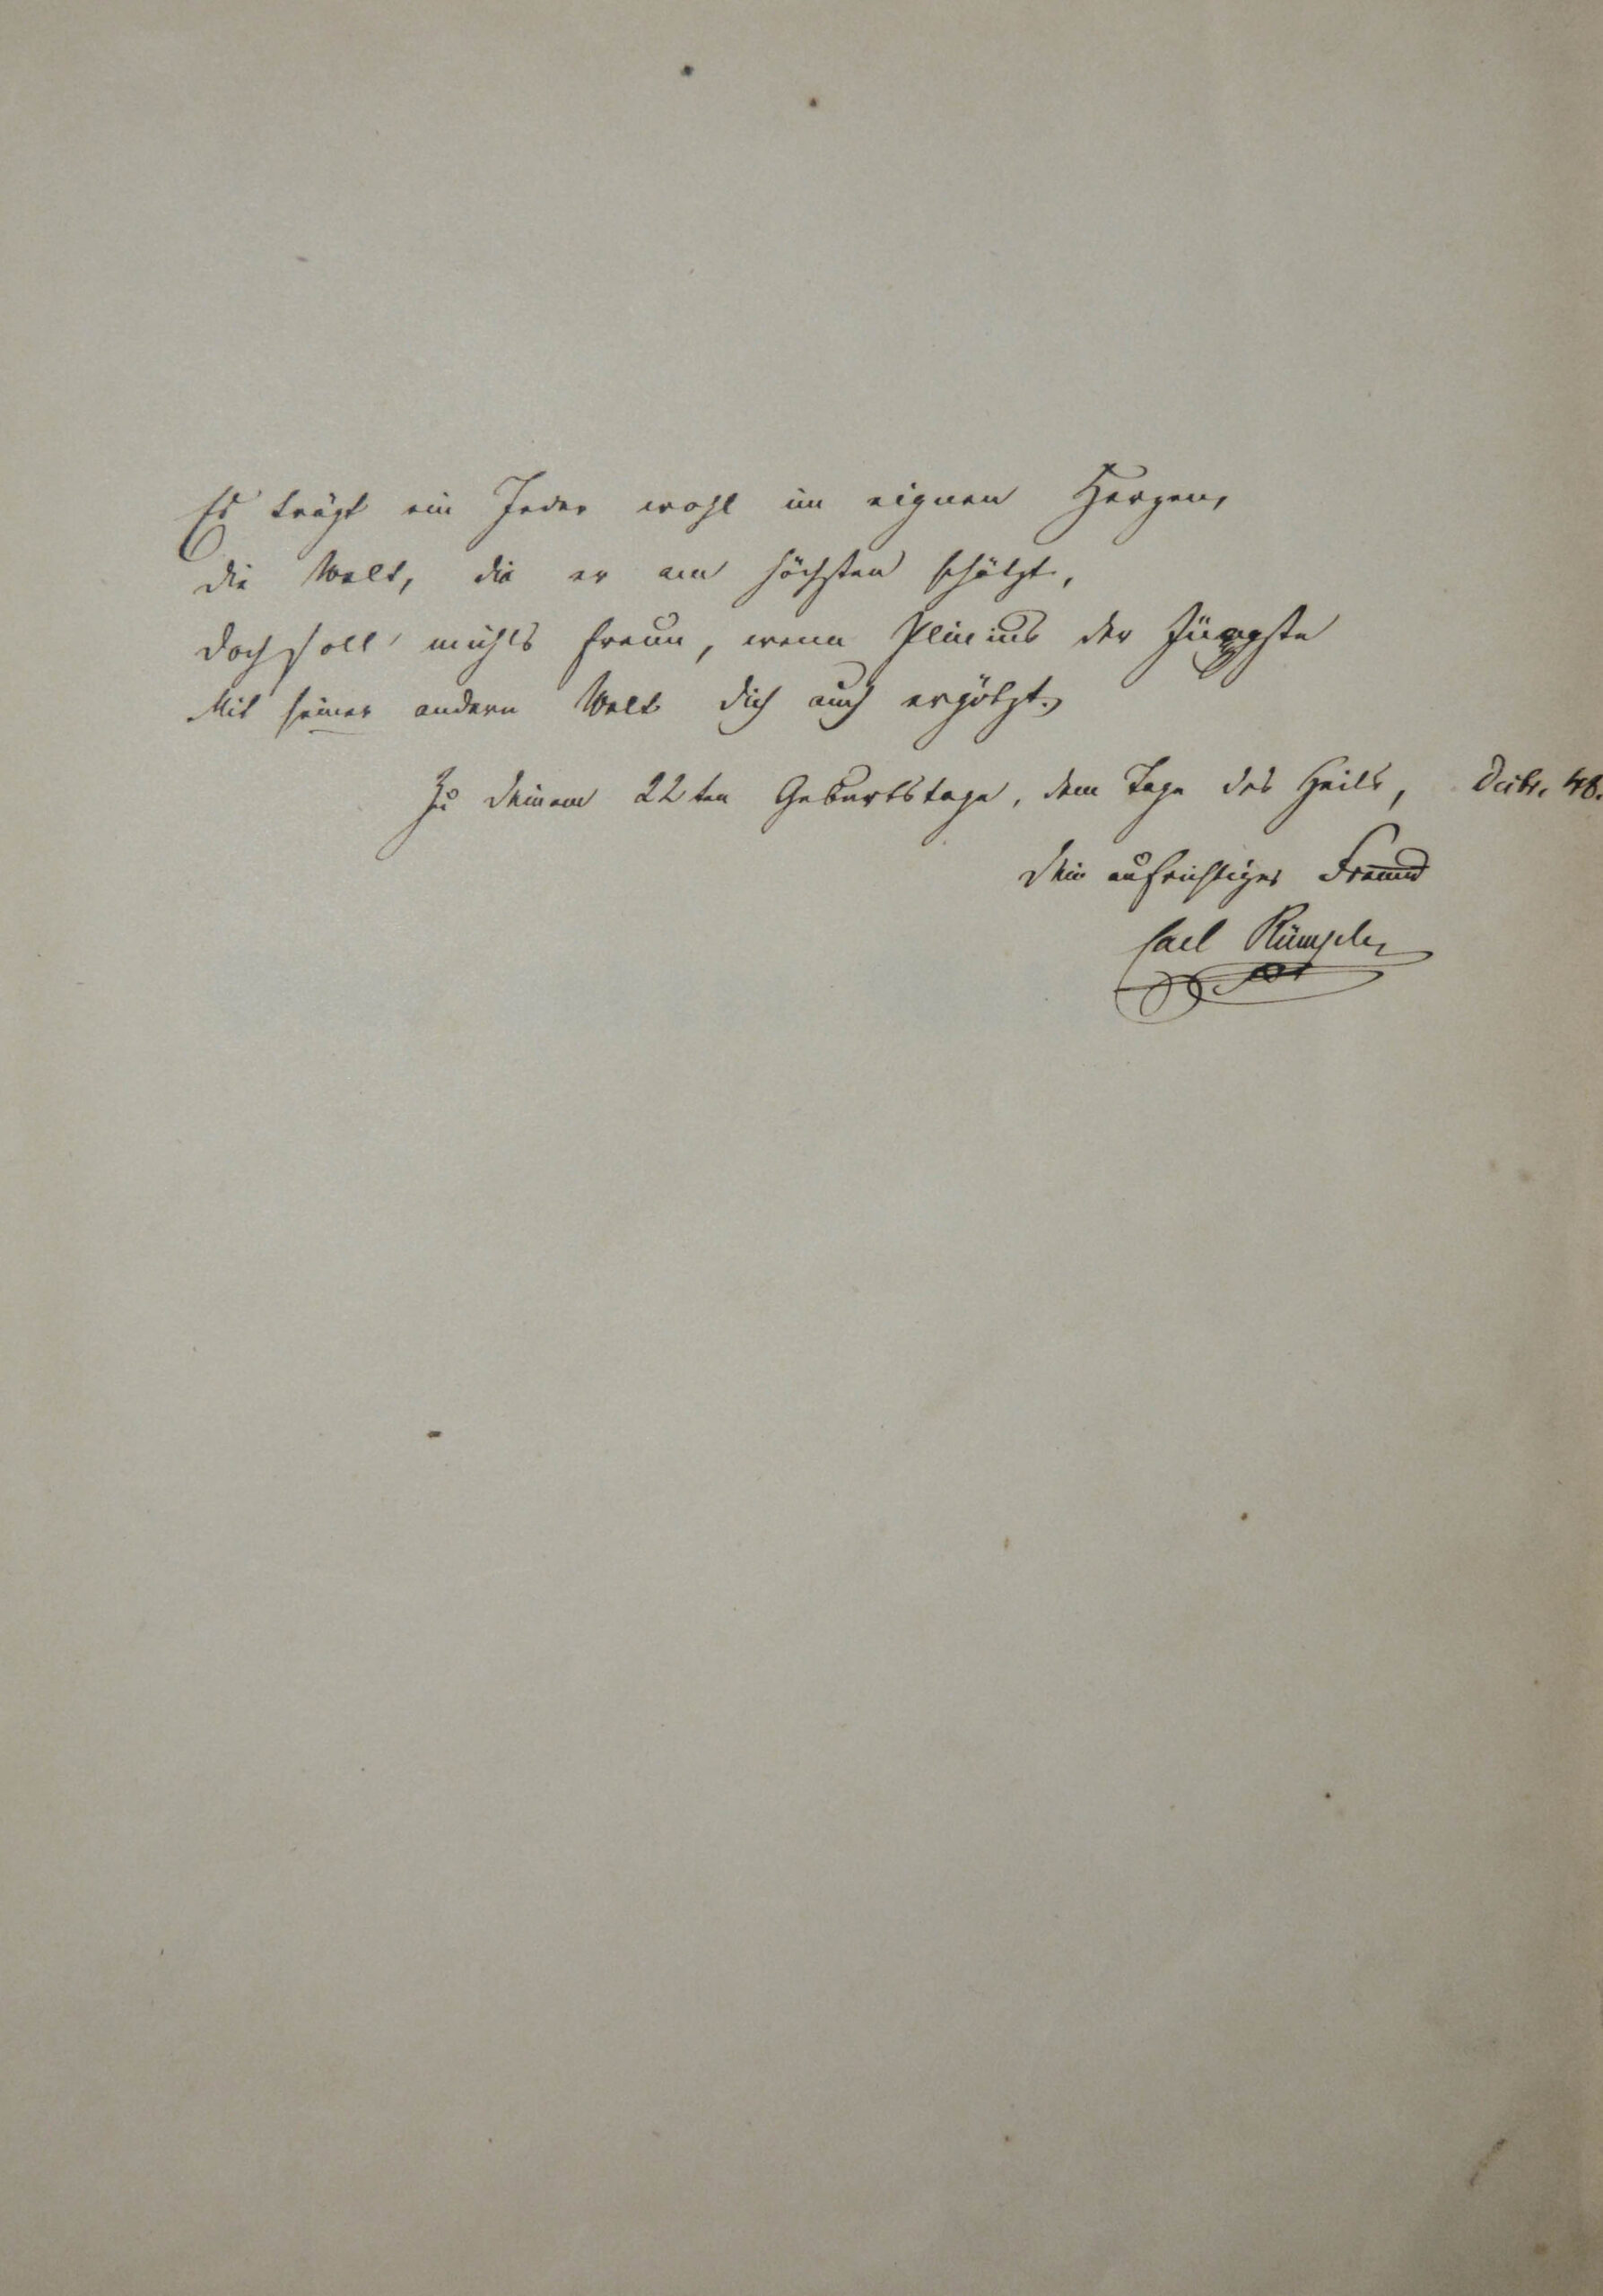 Es trägt ein Jeder wohl im eignen Herzen,
Die Welt, die er am höchsten schätzt,
Doch soll' mich's freun, wenn Plinius der Jüngste
Mit seiner andern Welt Dich auch ergötzt.
Zu Deinem 22ten Geburtstage, dem Tage des Heils, Dcbr. 48.
Dein aufrichtiger Freund
Carl Rümpler